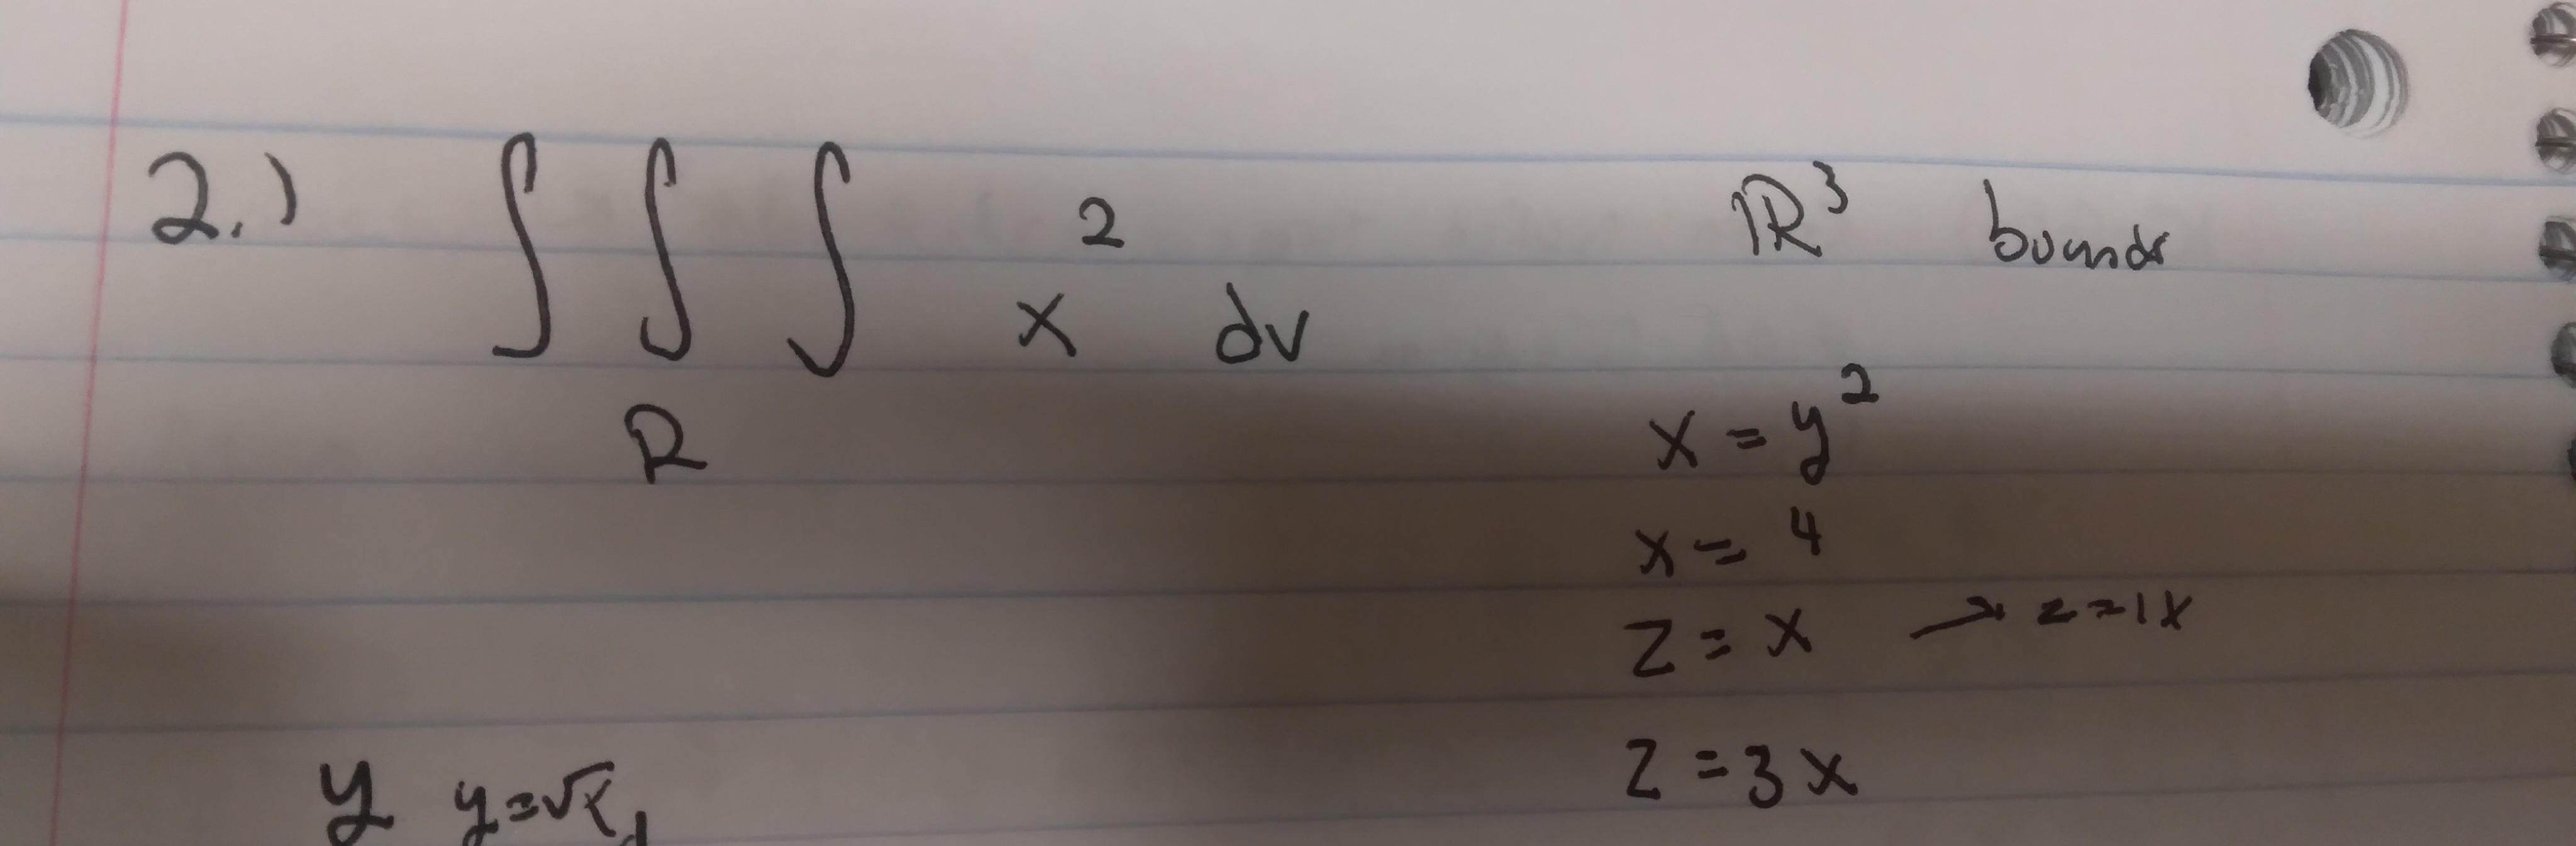 2.) ∫ ∫ ∫ x² dv ℝ³ bounds
R
x = y²
x = 4
z = x → z = 1x
z = 3x
y y=√x